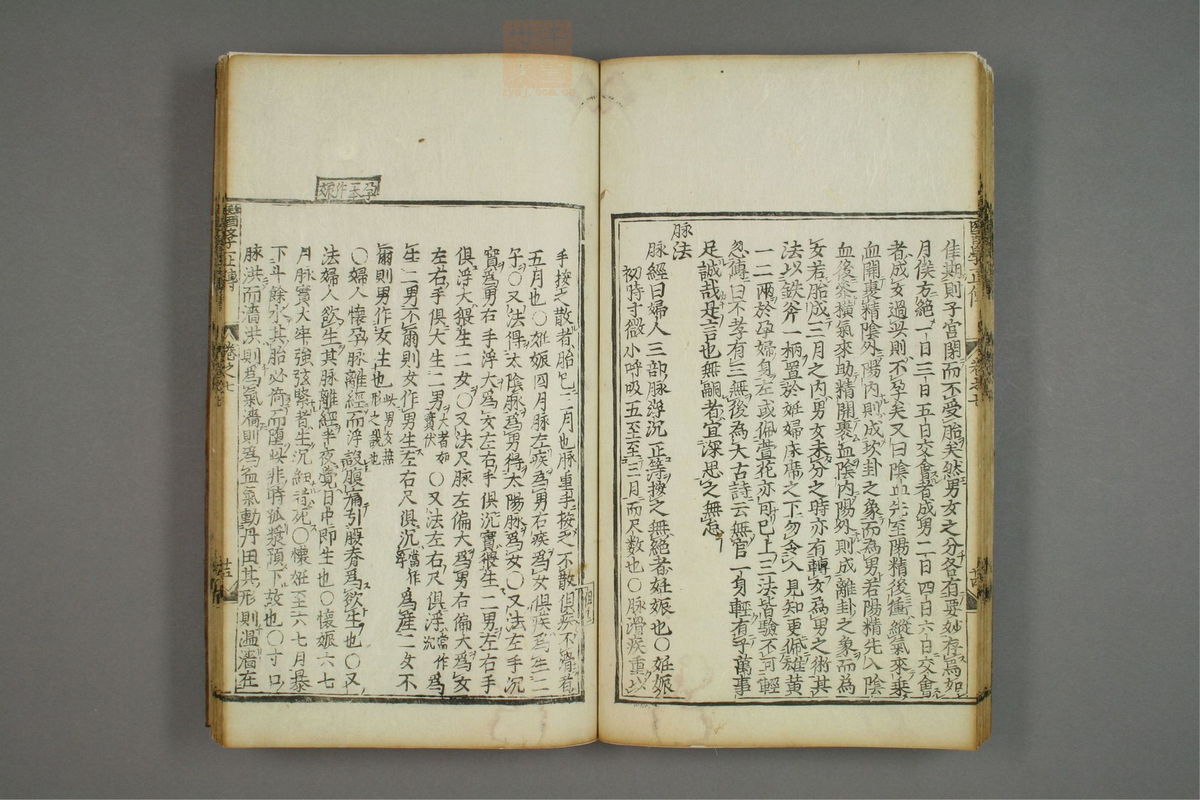 佳期則子宮閉而不受胎矣然男女之分各有要妙存焉如
月候方絕一日三日五日交會者成男二日四日六日交會
者成女過此則不孕矣又曰陰血先至陽精後衝縱氣來乘
血開裹精陰外陽內則成坎卦之象而為男若陽精先入陰
血後參橫氣來助精開裹血陰內陽外則成離卦之象而為
女若胎成三月之內男女未分之時亦有轉女為男之術其
法以鉄斧一柄置於妊婦床席之下勿令人見知更佩雄黃
一二兩於孕婦身左或佩萱花亦可已上三法皆驗不可輕
忽傳曰不孝有三無後為大古詩云無官一身輕有子萬事
足誠哉是言也無嗣者宜深思之無忽
脉法
脉經曰婦人三部脉浮沉正等按之無絕者妊娠也〇妊娠
初時寸微小呼吸五至至三月而尺数也〇脉滑疾重以
手按之散者胎已三月也脉重手按之不散但疾不滑者
五月也〇妊娠四月脉左疾爲男右疾爲女俱疾爲生二
子〇又法得太陰脉爲男得太陽脉爲女〇又法左手沉
實爲男右手浮大爲女左右手俱沉實猥生二男左右手
俱浮大猥生二女〇又法尺脉左偏大爲男右偏大爲女
左右手俱大生二男大者如實伏〇又法左右尺俱浮當作沉爲
生二男不爾則女作男生左右尺俱沉當作浮爲產二女不
爾則男作女生也此男女無形之義也
〇婦人懷孕脉離經而浮設腹痛引腰脊爲欲生也〇又
法婦人欲生其脉離經半夜覺日中即生也〇懷娠六七
月脉實大牢強弦緊者生沉細者死〇懷妊至六七月暴
下斗餘水其胎必倚而墮此非時孤漿預下故也〇寸口
脉洪而濇洪則爲氣濇則爲血氣動丹田其形則温濇在
孕一本作娠
卷之七